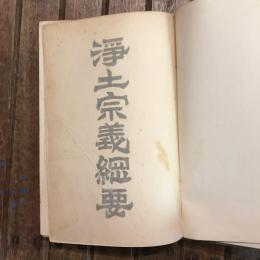 淨土宗義綱要